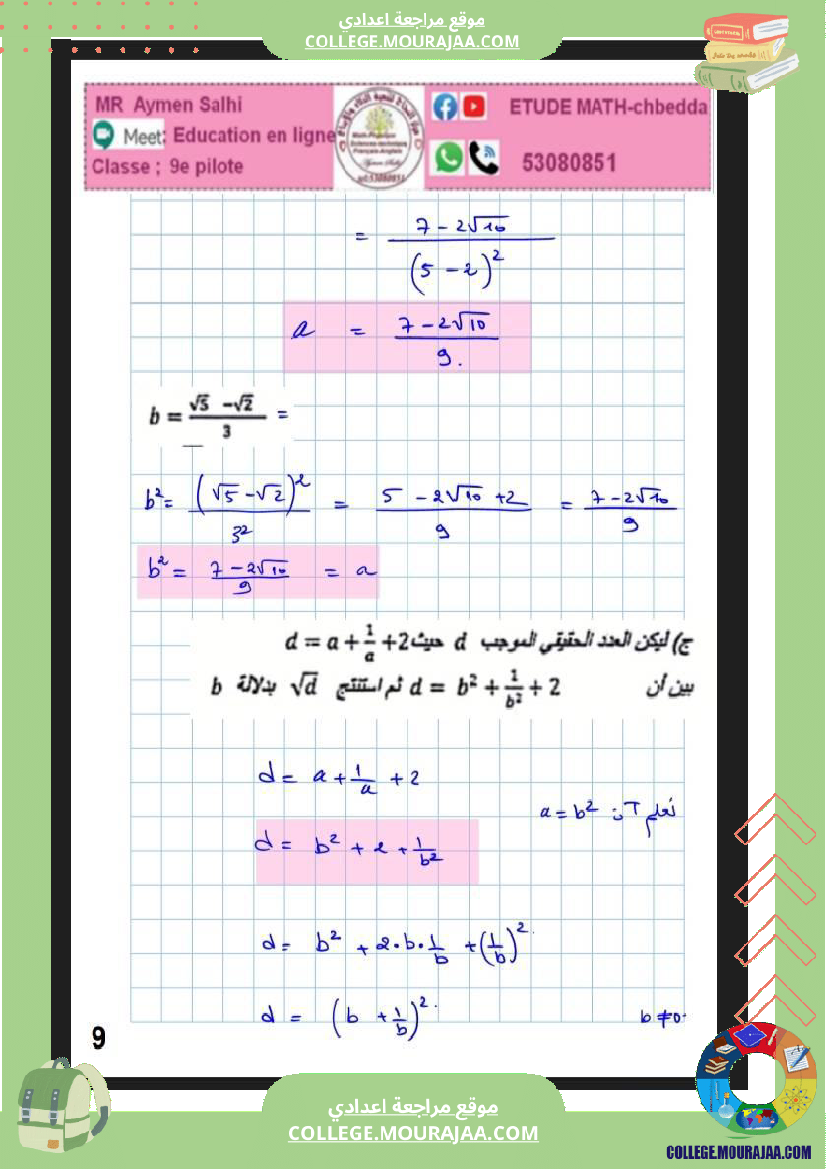 موقع مراجعة اعدادي
COLLEGE.MOURAJAA.COM
MR Aymen Salhi
Meet: Education en ligne
Classe ; 9e pilote
ETUDE MATH-chbedda
53080851
= (7 - 2√10) / (5 - 2)²
a = (7 - 2√10) / 9.
b = (√5 - √2) / 3 =
b² = (√5 - √2)² / 3² = (5 - 2√10 + 2) / 9 = (7 - 2√10) / 9
b² = (7 - 2√10) / 9 = a
ج) ليكن العدد الحقيقي الموجب d حيث d = a + 1/a + 2
بين أن d = b² + 1/b² + 2 ثم استنتج √d بدلالة b
d = a + 1/a + 2
نعلم آن a = b²
d = b² + 2 + 1/b²
d = b² + 2•b•1/b + (1/b)²
d = (b + 1/b)²
b ≠ 0
9
موقع مراجعة اعدادي
COLLEGE.MOURAJAA.COM
COLLEGE.MOURAJAA.COM